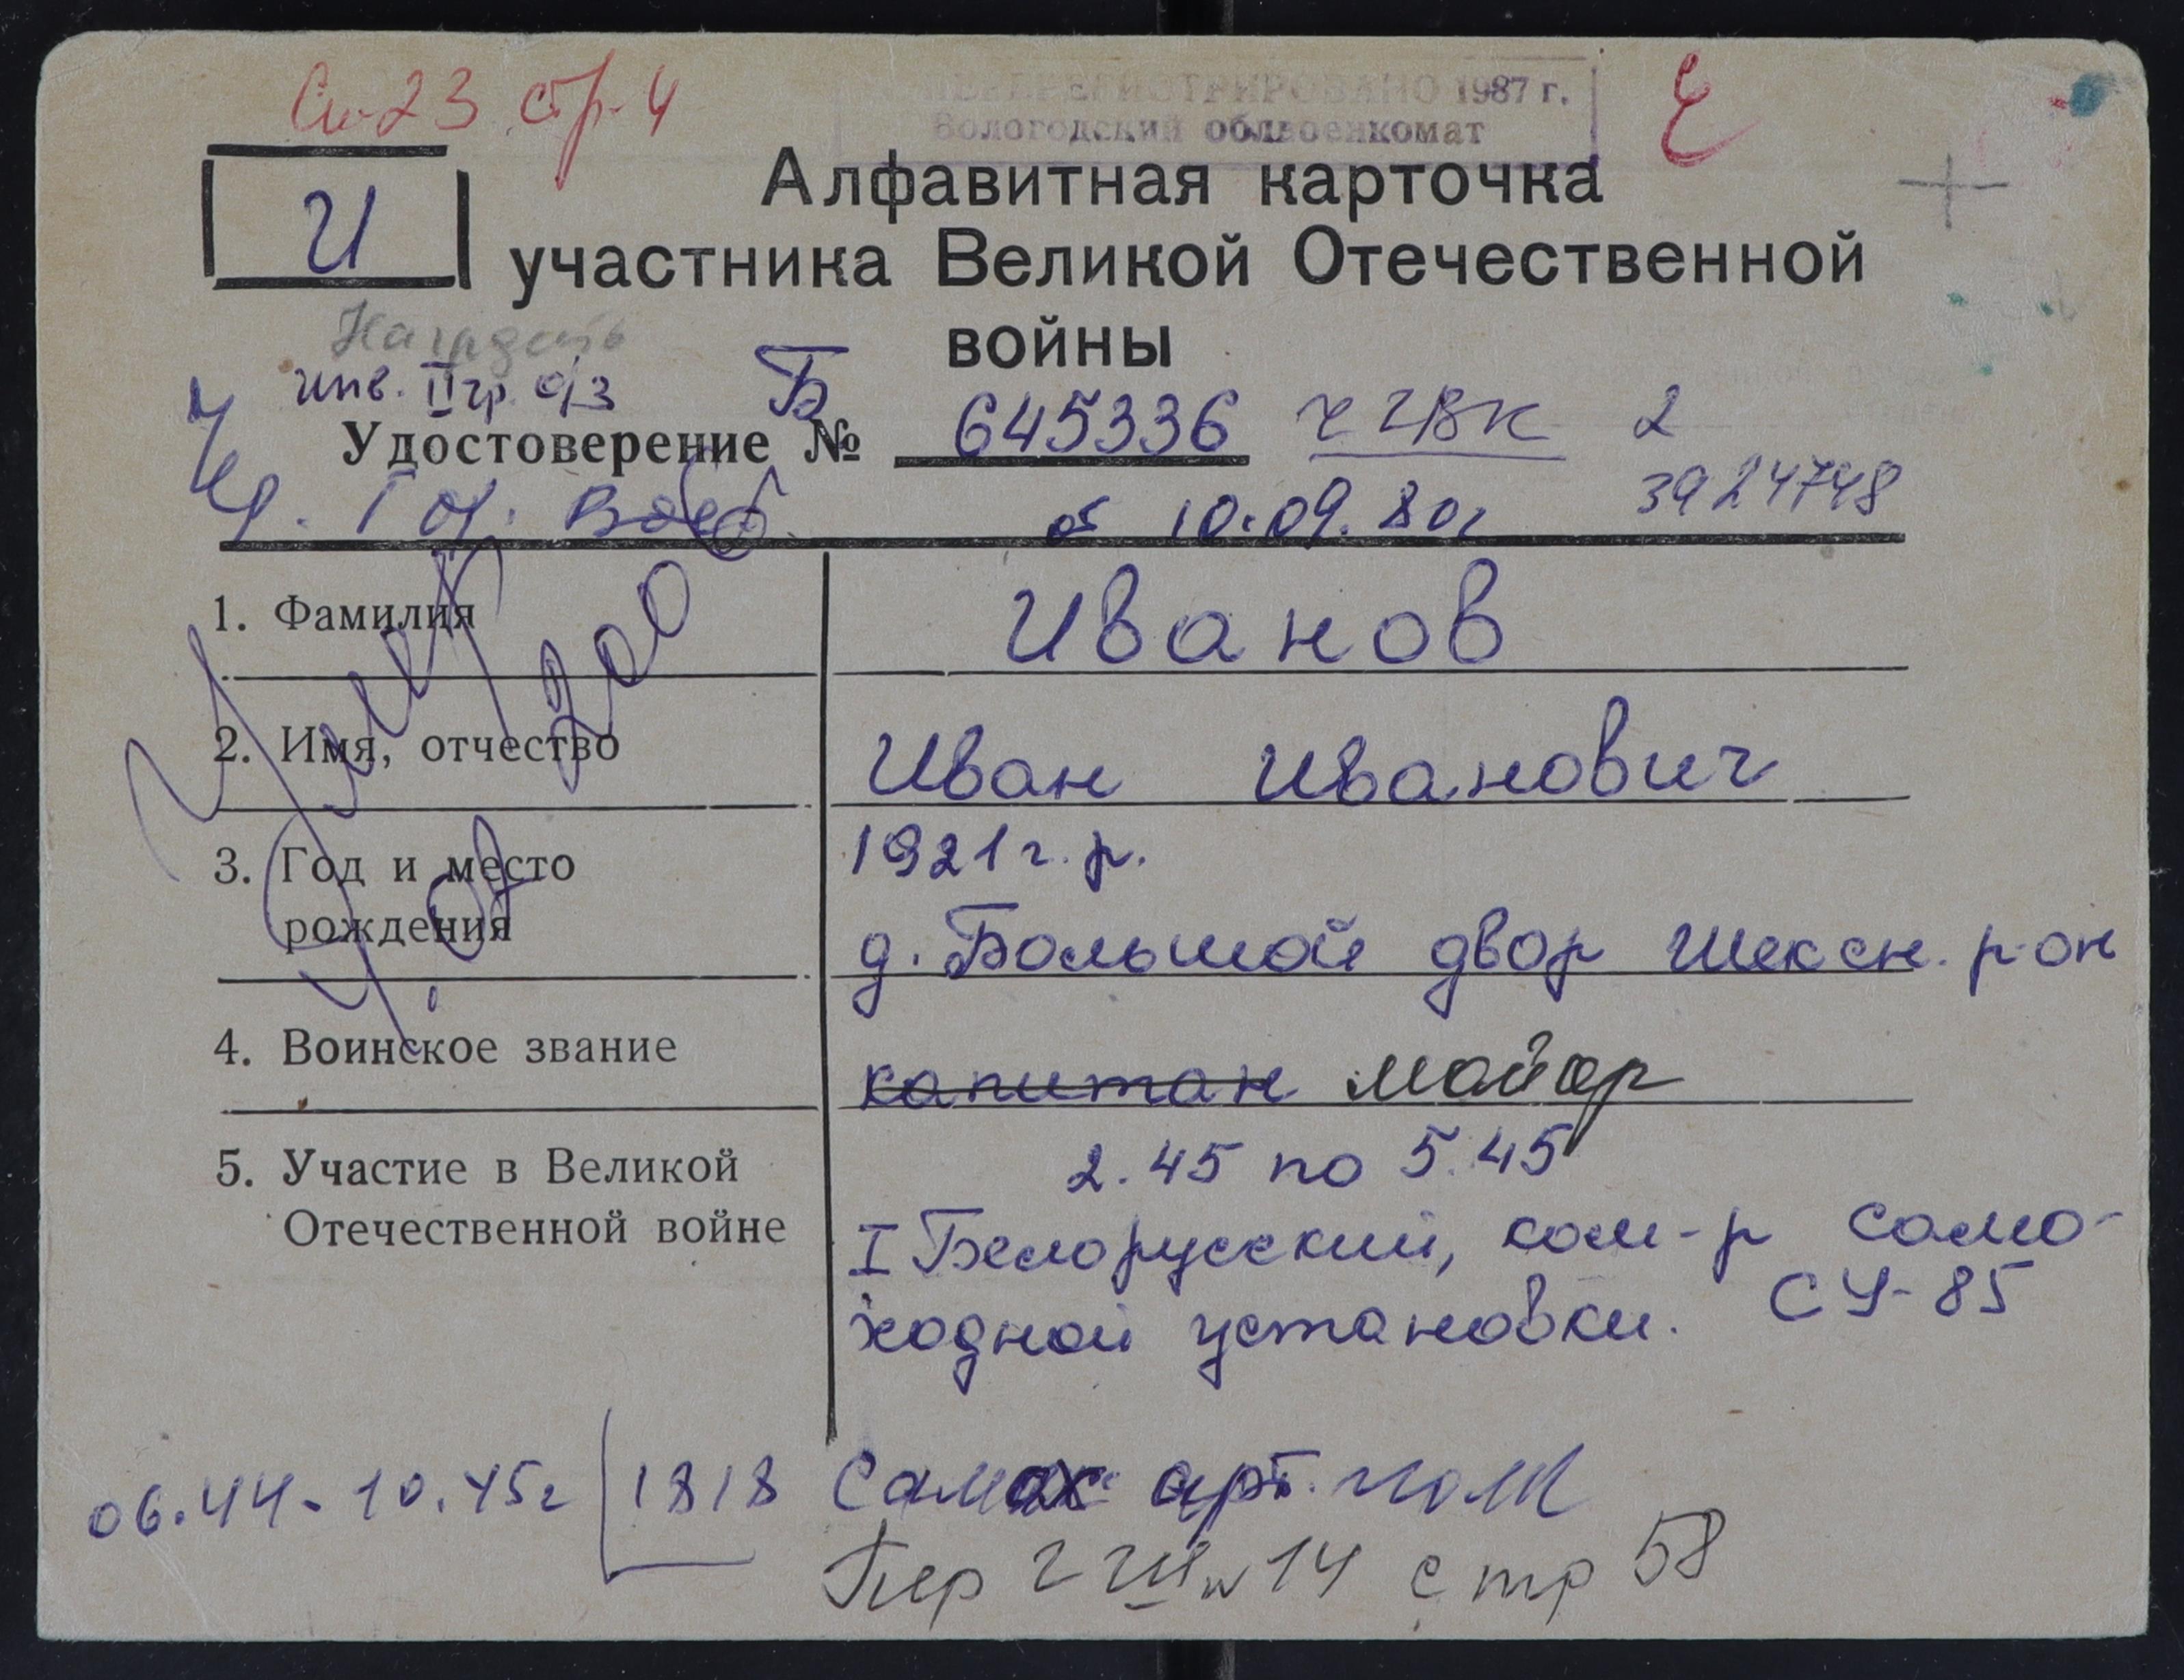 стр-4
ПЕРЕРЕГИСТРИРОВАНО 1987 г.
Вологодский облвоенкомат
И
Алфавитная карточка
участника Великой Отечественной
войны
Наградить
инв. II гр. о/з
Удостоверение № Б 645336 ЧГВК 2
от 10.09.80г 3924748
1. Фамилия Иванов
2. Имя, отчество Иван Иванович
3. Год и место рождения 1921 г.р.
д. Большой двор Шексн. р-он
4. Воинское звание капитан майор
5. Участие в Великой Отечественной войне 2.45 по 5.45
I Белорусский, ком-р само-
ходной установки. СУ-85
06.44-10.45г 1818 Самох арт. полк
14 стр 58